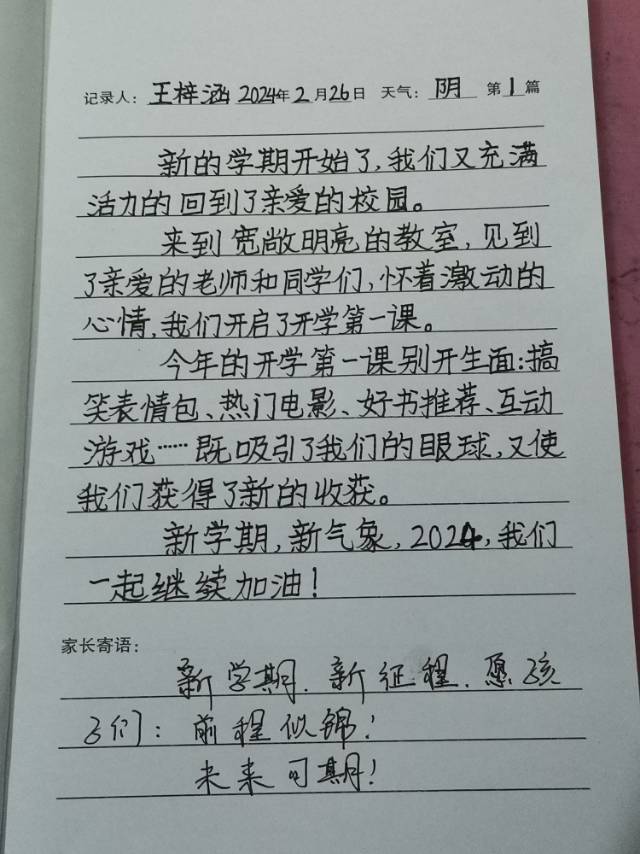 记录人：王梓涵 2024年2月26日 天气：阴 第1篇
新的学期开始了，我们又充满
活力的回到了亲爱的校园。
来到宽敞明亮的教室，见到
了亲爱的老师和同学们，怀着激动的
心情，我们开启了开学第一课。
今年的开学第一课别开生面：搞
笑表情包、热门电影、好书推荐、互动
游戏……既吸引了我们的眼球，又使
我们获得了新的收获。
新学期，新气象，2024，我们
一起继续加油！
家长寄语：
新学期．新征程．愿孩
子们：前程似锦！
未来可期！